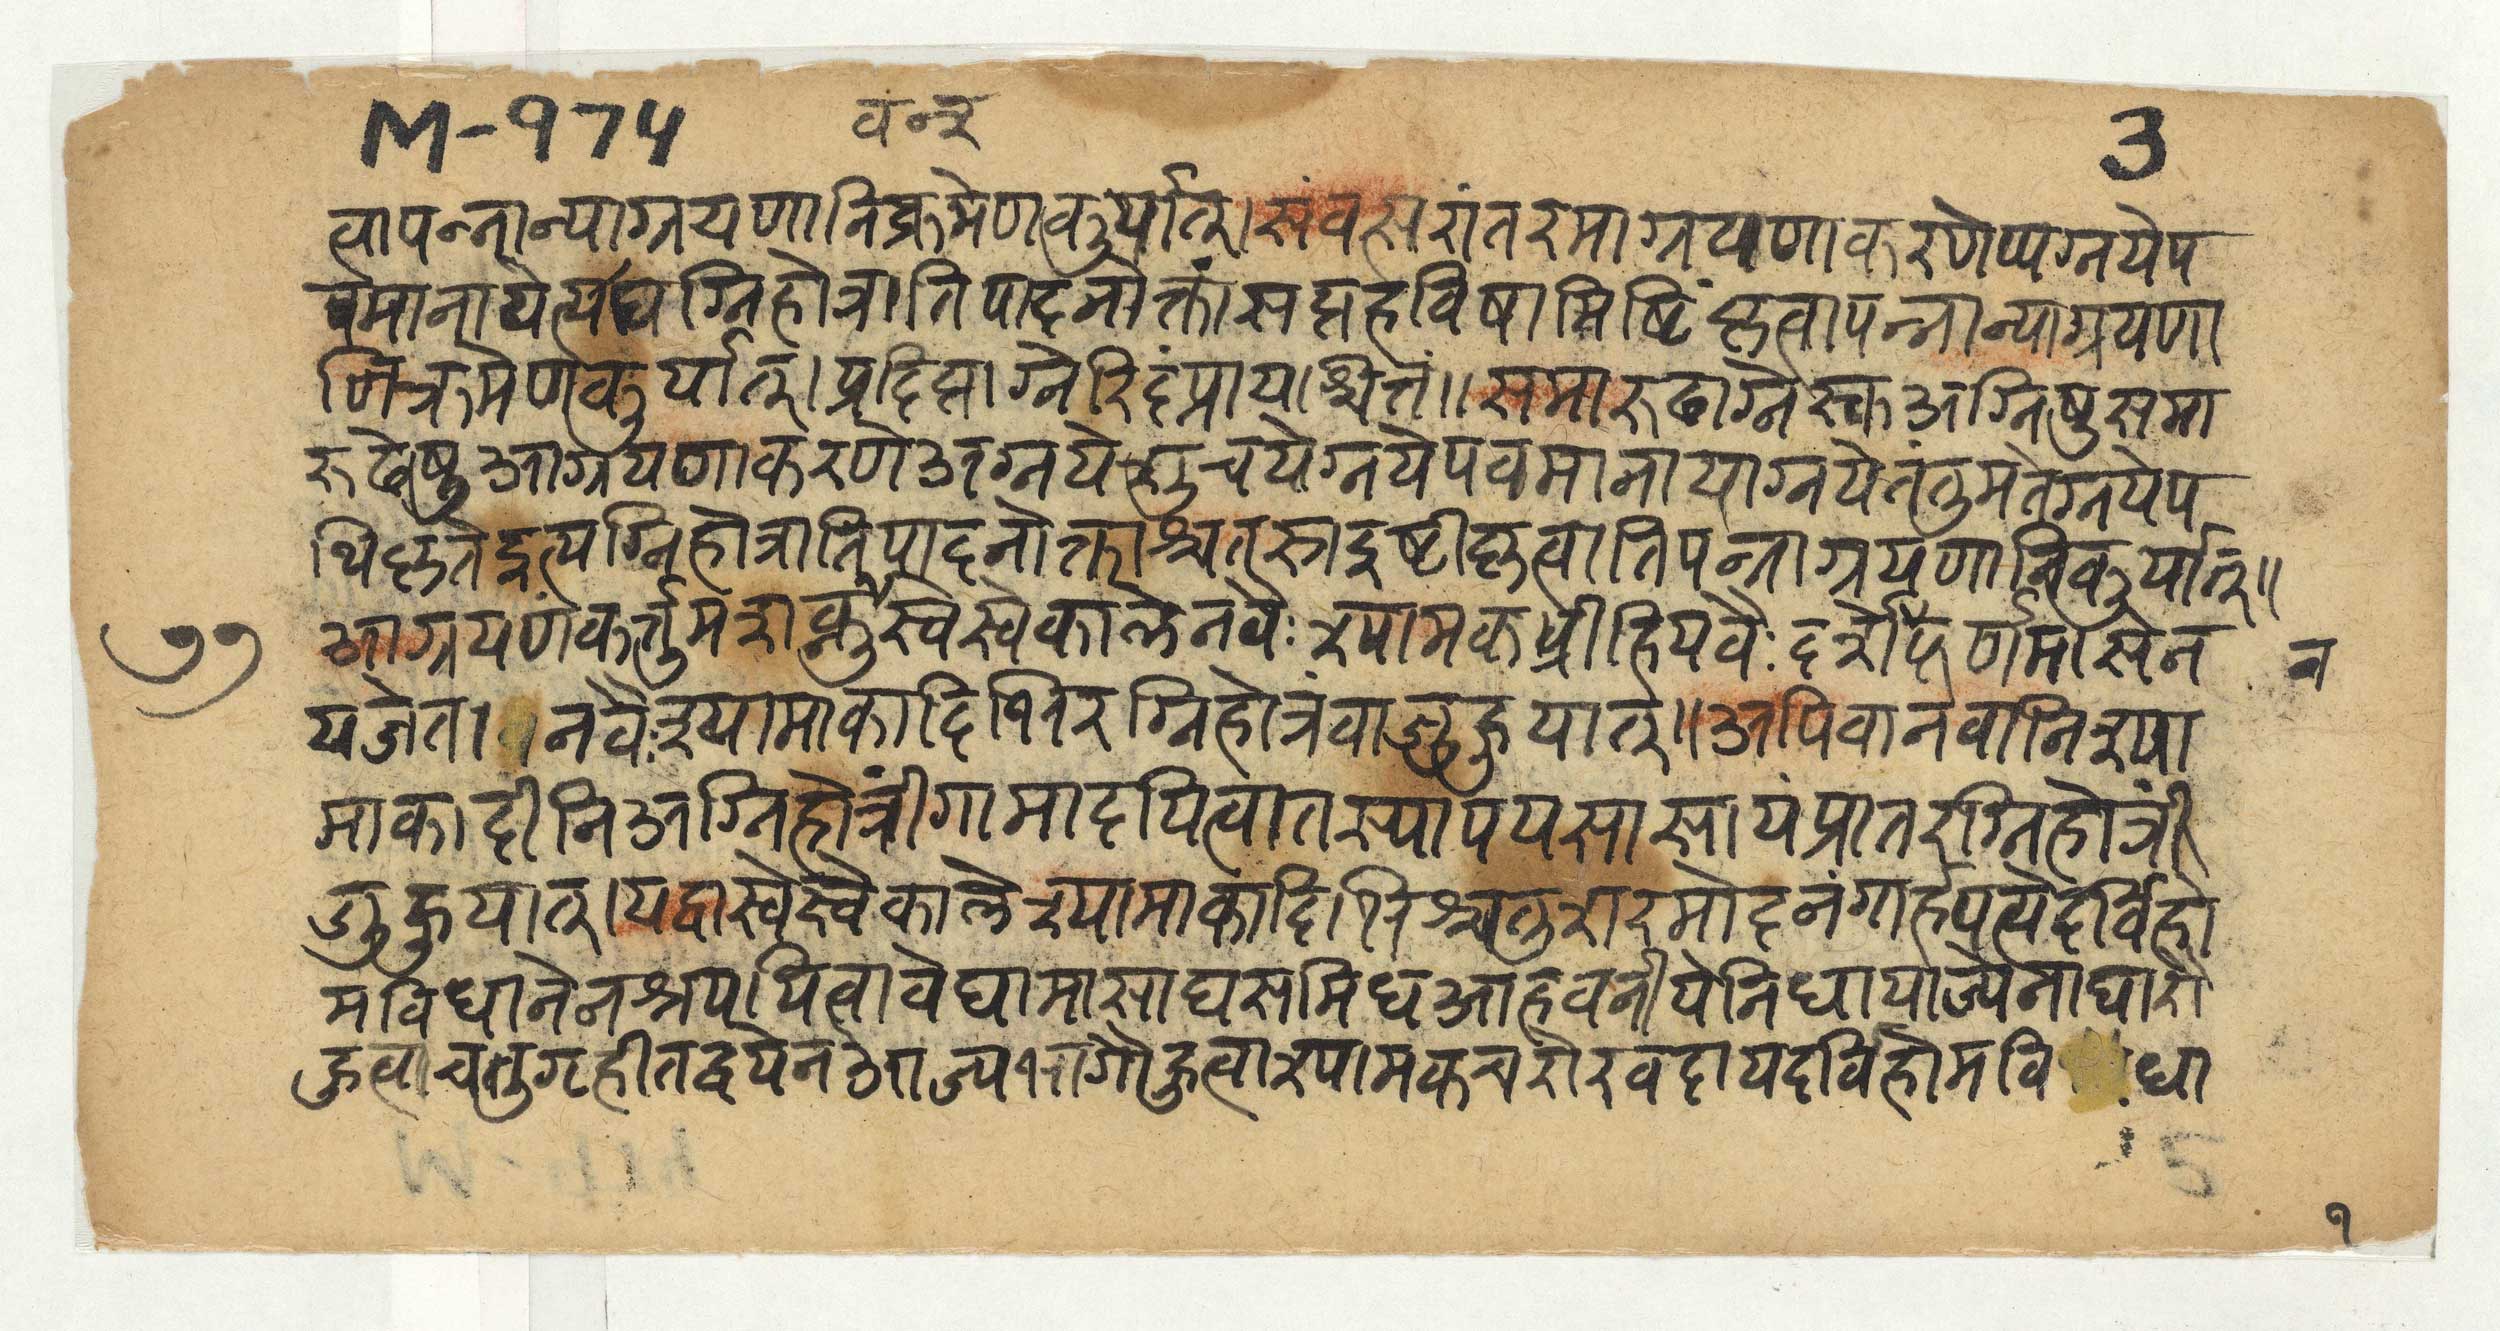 M-974 3
त्वापन्नान्याग्रयणानिक्रमेणकुर्यात्। संवत्सरांतरमाग्रयणाकरणेप्यग्नयेप
वमानायेत्यग्निहोत्रातिपादनोक्तांसप्तहविषामिष्टिंकृत्वापन्नान्याग्रयणा
निक्रमेणकुर्यात्। प्रदिप्ताग्नेरिदंप्रायश्चित्तं॥ समारूढाग्नेस्तुअग्निषुसमा
रूढेषुआग्रयणाकरणेअग्नयेशुचयेग्नयेपवमानायाग्नयेतंतुमतेग्नयेप
थिकृतेइत्यग्निहोत्रातिपादनोक्ताश्चतस्रइष्टीकृत्वातिपन्नाग्रयणानिकुर्यात्॥
आग्रयणंकर्त्तुमशक्तुस्वेस्वेकालेनवैः श्यामकव्रीहियवैः दर्शपौर्णमासेन
यजेत। नवैःश्यामाकादिभिरग्निहोत्रंवाजुहुयात्॥ अपिवानवानिश्या
माकादीनिअग्निहोत्रींगामादयित्वातस्यापयसासायंप्रातरग्निहोत्रीं
जुहुयात्। यद्वास्वेस्वेकालेश्यामाकादिभिश्चतुशरामोदनंगार्हपत्येदर्विहो
मविधानेनश्रपयित्वावेद्यामासाद्यसमिधआहवनीयेनिधायाज्येनाघारौ
हुत्वाचतुगृहीतद्वयेनआज्यभागौहुत्वाश्यामकचरोरवदायदर्विहोमवि धा
७७
न
१